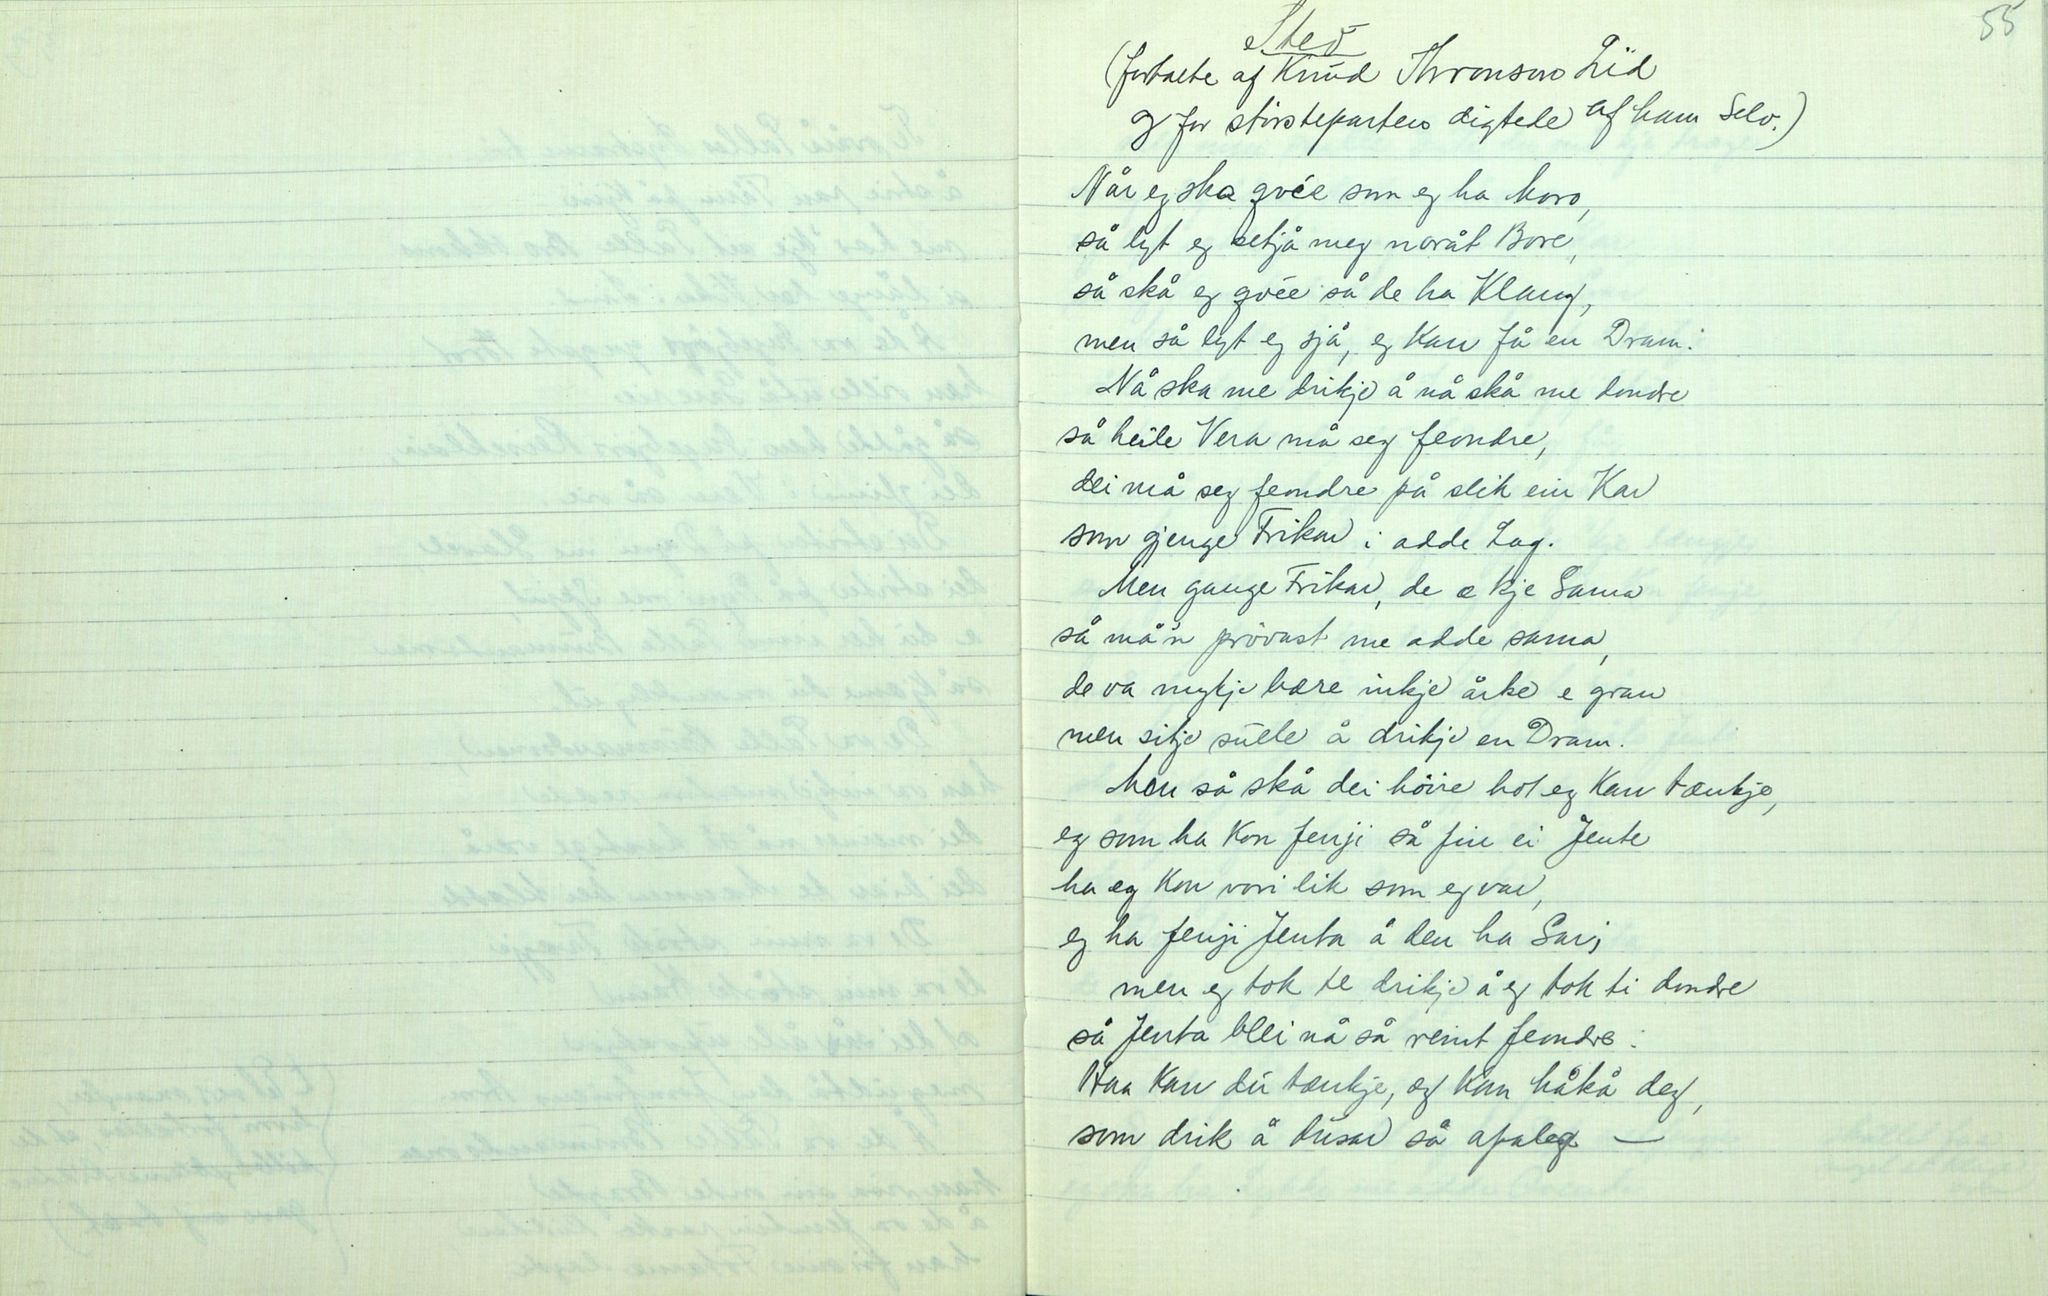 55
Stev
(fortalte af Knud Thronson Lid
og for størsteparten digtede af ham Selv.)
Når eg ska qvée som eg ha Moro,
så lyt eg setjå meg noråt Bore,
så skå eg qvée så de ha Klang,
men så lyt eg sjå, eg Kan få en Dram:
Nå ska me drikje å nå skå me dondre
så heile Vera må seg fondre,
dei må seg fondre på slik ein Kar
som gjenge Frikar i adde Lag.
Men gange Frikar, de æ kje Gama
så må'n prövast me adde sama,
de va mykje bære inkje årke e gran
men sitje stille å drikje en Dram.
Men så skå dei höire hot eg Kan tænkje,
eg som ha Kon fenji så fin ei Jente
ha eg Kon vori lik som eg var,
eg ha fenji Jenta å den ha Gar;
men eg tok te drikje å eg tok ti dondre
så Jenta blei nå så reint fondre:
Haa Kan dü tænkje, eg Kan håkå deg,
som drik å düsar så apaleg —